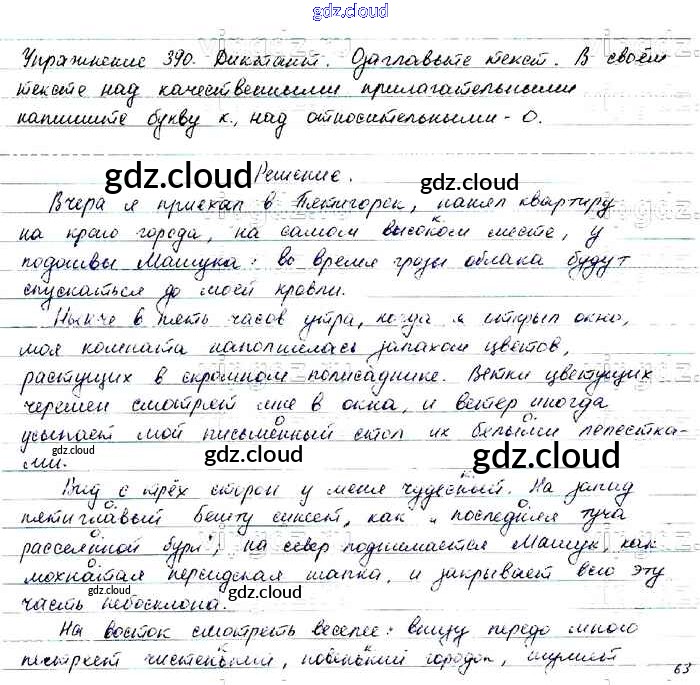 gdz.cloud
Упражнение 390. Диктант. Озаглавьте текст. В своём
тексте над качественными прилагательными
напишите букву к., над относительными - О.
gdz.cloud Решение. gdz.cloud
Вчера я приехал в Пятигорск, нанял квартиру
на краю города, на самом высоком месте, у
подошвы Машука: во время грозы облака будут
спускаться до моей кровли.
Нынче в пять часов утра, когда я открыл окно,
моя комната наполнилась запахом цветов,
растущих в скромном полисаднике. Ветки цветущих
черешен смотрят мне в окна, и ветер иногда
усыпает мой письменный стол их белыми лепестка-
ми.
gdz.cloud gdz.cloud gdz.cloud
Вид с трёх сторон у меня чудесный. На запад
пятиглавый Бешту синеет, как „последняя туча
рассеянной бури", на север поднимается Машук, как
мохнатая персидская шапка, и закрывает всю эту
часть небосклона.
gdz.cloud gdz.cloud
На восток смотреть веселее: внизу передо мною
пестреет чистенький, новенький городок, шумят
63